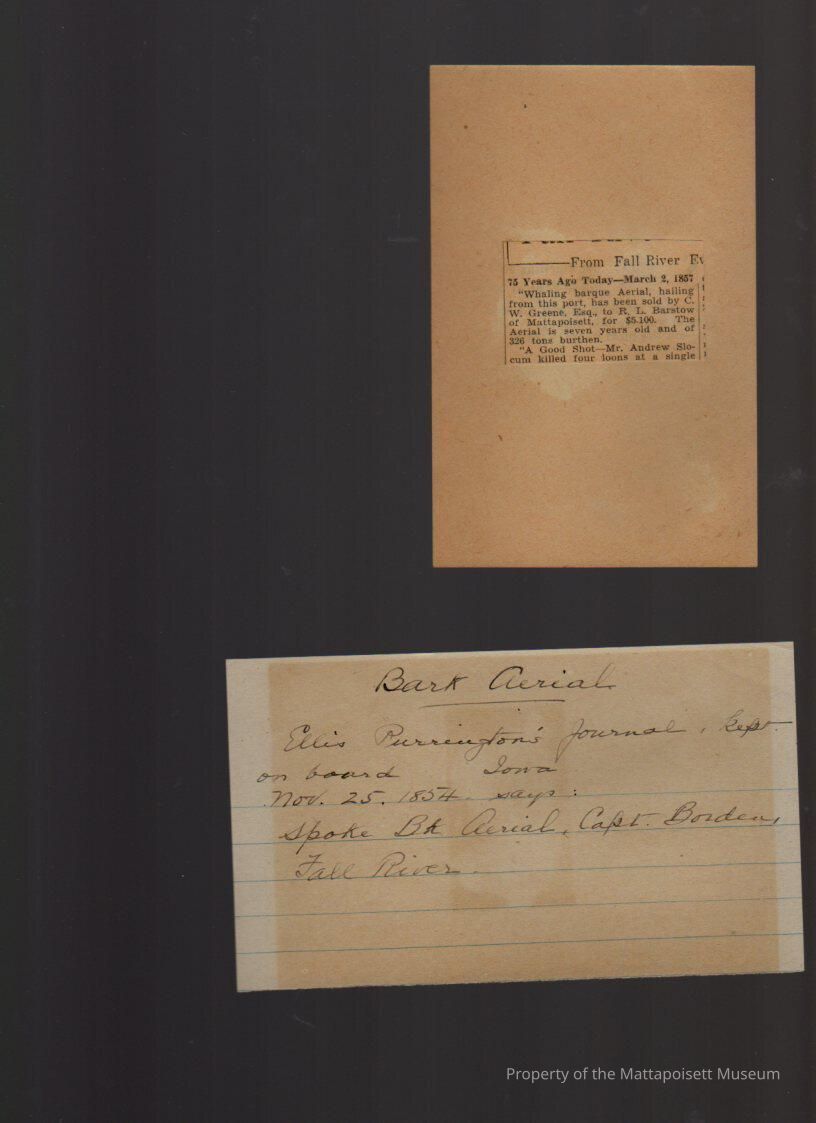 From Fall River Ev
75 Years Ago Today—March 2, 1857
"Whaling barque Aerial, hailing
from this port, has been sold by C.
W. Greene, Esq., to R. L. Barstow
of Mattapoisett, for $5.100. The
Aerial is seven years old and of
326 tons burthen.
"A Good Shot—Mr. Andrew Slo-
cum killed four loons at a single
Bark Aerial
Ellis Purrington's Journal, kept
on board Iowa
Nov. 25. 1854 says:
Spoke Bk Aerial, Capt. Borden,
Fall River.
Property of the Mattapoisett Museum